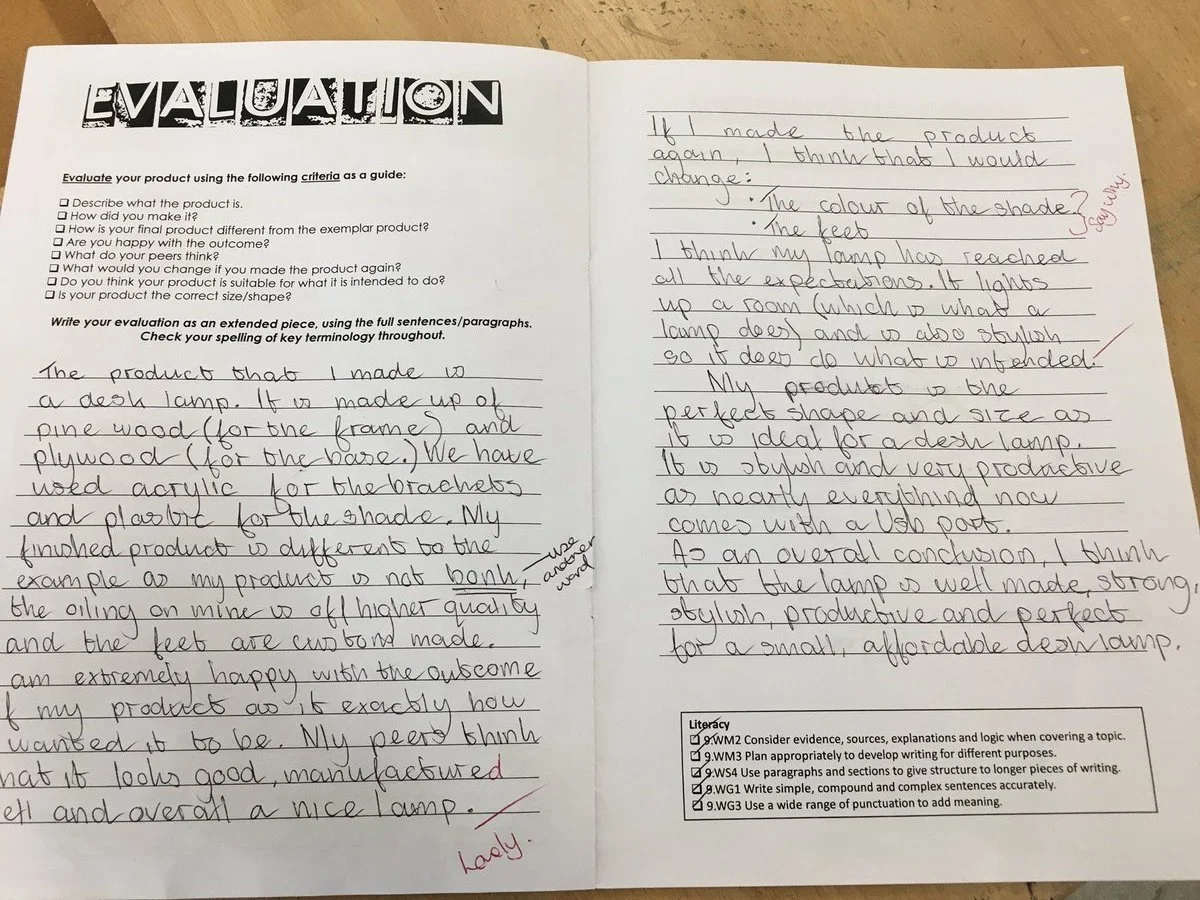 EVALUATION
Evaluate your product using the following criteria as a guide:
Describe what the product is.
How did you make it?
How is your final product different from the exemplar product?
Are you happy with the outcome?
What do your peers think?
What would you change if you made the product again?
Do you think your product is suitable for what it is intended to do?
Is your product the correct size/shape?
Write your evaluation as an extended piece, using the full sentences/paragraphs.
Check your spelling of key terminology throughout.
The product that I made is
a desk lamp. It is made up of
pine wood (for the frame) and
plywood (for the base.) We have
used acrylic for the brackets
and plastic for the shade. My
finished product is different to the
example as my product is not bonk,
use
another
word
the oiling on mine is off higher quality
and the feet are custom made.
am extremely happy with the outcome
f my product as it exactly how
wanted it to be. My peers think
hat it looks good, manufactured
ell and overall a nice lamp.
Lovely.
If I made the product
again, I think that I would
change:
· The colour of the shade
· The feet
? Say why.
I think my lamp has reached
all the expectations. It lights
up a room (which is what a
lamp does) and is also stylish
so it does do what is intended.
My product is the
perfect shape and size as
it is ideal for a desk lamp.
It is stylish and very productive
as nearly everything now
comes with a Usb port.
As an overall conclusion, I think
that the lamp is well made, strong,
stylish, productive and perfect
for a small, affordable desk lamp.
Literacy
9.WM2 Consider evidence, sources, explanations and logic when covering a topic.
9.WM3 Plan appropriately to develop writing for different purposes.
9.WS4 Use paragraphs and sections to give structure to longer pieces of writing.
9.WG1 Write simple, compound and complex sentences accurately.
9.WG3 Use a wide range of punctuation to add meaning.